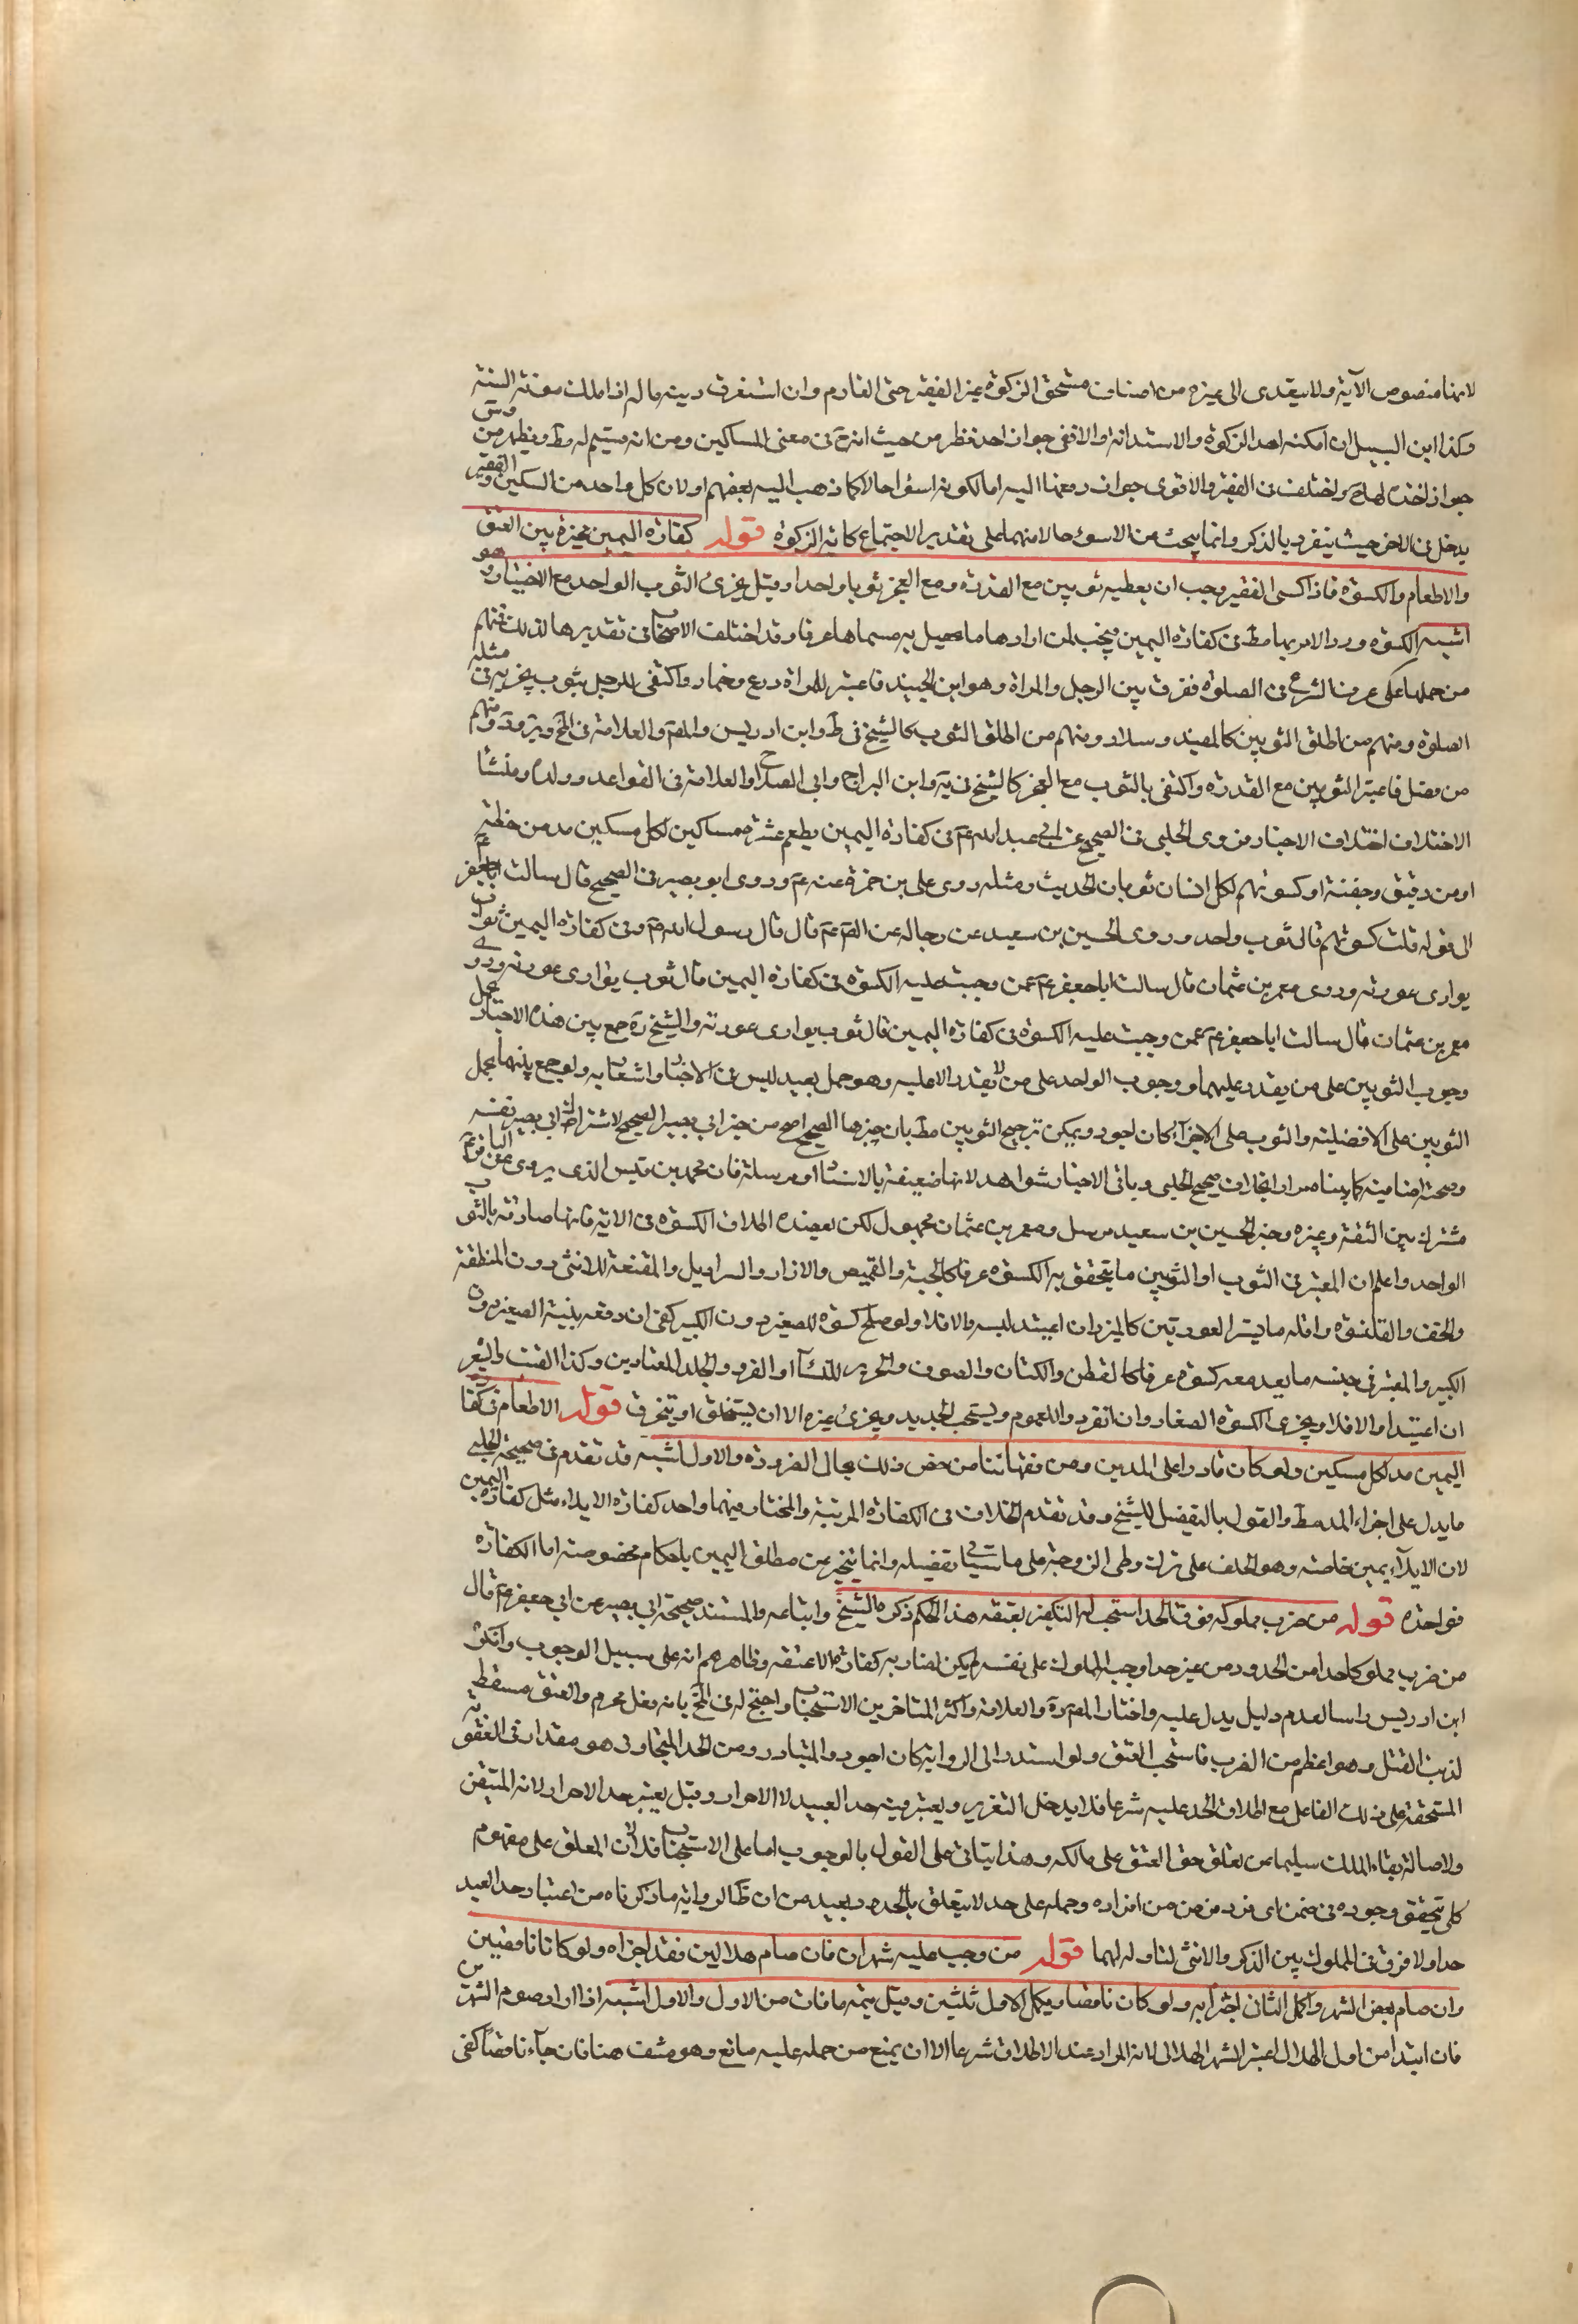 لانهما منصوص الآية ولا يتعدى الى غيره من اصناف مستحق الزكوة غير الفقير حتى الغارم وان استغرق دينه ماله اذا ملك مؤنة السنة
وكذا ابن السبيل ان امكنه اخذ الزكوة والاستدانة والا ففى جواز اخذه نظر من حيث انه ح فى معنى المساكين ومن انه قسيم له مط ويظهر من
جواز اخذه لها ح واختلف فى الفقير والاقوى جواز دفعها اليه اما لكونه اسوء حالا كما ذهب اليه بعضهم او لان كل واحد من المسكين والفقير
يدخل فى الاخر حيث ينفرد بالذكر وانما يبحث عن الاسوء حالا منهما على تقدير الاجتماع كاية الزكوة قوله كفارة اليمين مخيرة بين العتق
والاطعام والكسوة فاذا كسى الفقير وجب ان يعطيه ثوبين مع القدرة ومع العجز ثوبا واحدا وقيل يجزئ الثوب الواحد مع الاختيار وهو
اشبه الكسوة ورد الامر بها مط فى كفارة اليمين ويجب لمن ارادها ما يحصل به مسماها عرفا وقد اختلف الاصحاب فى تقديرها لذلك فمنهم
من حملها على عرف الشرع فى الصلوة ففرق بين الرجل والمراة وهو ابن الجنيد فاعتبر للمراة درع وخمار واكتفى للرجل بثوب يجزيه فى مثله
الصلوة ومنهم من اطلق الثوبين كالمفيد وسلار ومنهم من اطلق الثوب كالشيخ فى ط وابن ادريس والمص والعلامة فى المخ وير ود ومنهم
من فصل فاعتبر الثوبين مع القدرة واكتفى بالثوب مع العجز كالشيخ فى ية وابن البراج وابى الصلاح والعلامة فى القواعد وولده ومنشأ
الاختلاف اختلاف الاخبار فروى الحلبى فى الصحيح عن ابى عبد الله ع فى كفارة اليمين يطعم عشرة مساكين لكل مسكين مد من حنطة
او مد من دقيق وحفنة او كسوتهم لكل انسان ثوبان الحديث ومثله روى على بن حمزة عنه ع وروى ابو بصير فى الصحيح قال سالت ابا جعفر ع
الى قوله قلت كسوتهم قال ثوب واحد وروى الحسين بن سعيد عن رجاله عن الص ع قال قال رسول الله ص فى كفارة اليمين ثوب
يوارى عورته وروى معمر بن عثمان قال سالت ابا جعفر ع عمن وجبت عليه الكسوة فى كفارة اليمين قال ثوب يوارى عورته وروى
معمر بن عثمان قال سالت ابا جعفر ع عمن وجبت عليه الكسوة فى كفارة اليمين قال ثوب يوارى عورته والشيخ ره جمع بين هذه الاخبار بحمل
وجوب الثوبين على من يقدر عليهما ووجوب الواحد على من لا يقدر الا عليه وهو حمل بعيد ليس فى الاخبار اشعار به ولو جمع بينها بحمل
الثوبين على الافضلية والثوب على الاجزاء كان اجود ويمكن ترجيح الثوبين مط بان خبرها الصحيح اصح من خبر ابى بصير الصحيح لاشتراك ابى بصير نفسه
وصحته اضافية كما بيناه مرارا بخلاف صحيح الحلبى وباقى الاخبار شواهد لانها ضعيفة بالاسناد او مرسلة فان محمد بن قيس الذى يروى عن الباقر ع
مشترك بين الثقة وغيره وخبر الحسين بن سعيد مرسل ومعمر بن عثمان مجهول لكن يعضده اطلاق الكسوة فى الاية فانها صادقة بالثوب
الواحد واعلم ان المعتبر فى الثوب او الثوبين ما يتحقق به الكسوة عرفا كالجبة والقميص والازار والسراويل والمقنعة للانثى دون المنطقة
والخف والقلنسوة واقله ما يستر العورتين كالميزر ان اعتيد لبسه والا فلا ولو صلح كسوة للصغير دون الكبير كفى ان دفعه بنية الصغير دون
الكبير والمعتبر فى جنسه ما يعد معه كسوة عرفا كالقطن والكتان والصوف والحرير للنساء او الفرو والجلد المعتادين وكذا القنب والشعر
ان اعتيدا والا فلا ويجزى الكسوة الصغار وان انفردوا للعموم ويستحب الجديد ويجزئ غيره الا ان يستخلق او يتخرق قوله الاطعام فى كفارة
اليمين مد لكل مسكين ولو كان قادرا على المدين ومن فقهائنا من خص ذلك بحال الضرورة والاول اشبه قد تقدم فى صحيحة الحلبى
ما يدل على اجزاء المد مط والقول بالتفصيل للشيخ وقد تقدم الخلاف فى الكفارة المرتبة والمختار فيهما واحد كفارة الايلاء مثل كفارة اليمين
لان الايلاء يمين خاصة وهو الحلف على ترك وطى الزوجة على ما سياتى تفصيله وانما يتميز عن مطلق اليمين باحكام مخصوصة اما الكفارة
فواحدة قوله من ضرب مملوكه فوق الحد استحب له التكفير بعتقه هذا الحكم ذكره الشيخ واتباعه والمستند صحيحة ابى بصير عن ابى جعفر ع قال
من ضرب مملوكا حدا من الحدود من غير حد اوجبه المملوك على نفسه لم يكن لضاربه كفارة الا عتقه وظاهرهم انه على سبيل الوجوب وانكره
ابن ادريس راسا لعدم دليل يدل عليه واختار المص ره والعلامة واكثر المتاخرين الاستحباب واحتج له فى المخ بانه فعل محرم والعتق مسقط
لذنب القتل وهو اعظم من الضرب فاستحب العتق ولو استدوا الى الرواية كان اجود والمتبادر من الحد المتجاوز هو مقداره فى العقوبة
المستحقة على ذلك الفاعل مع اطلاق الحد عليه شرعا فلا يدخل التعزير ويعتبر فيه حد العبيد لا الاحرار وقيل يعتبر حد الاحرار لانه المتيقن
ولاصالة بقاء الملك سليما عن تعلق حق العتق على مالكه وهذا يتاتى على القول بالوجوب اما على الاستحباب فلا لان المعلق على مفهوم
كلى يتحقق وجوده فى ضمن اى فرد فرض من افراده وحمله على حد لا يتعلق بالحدود بعيد من ان ظ الرواية ما ذكرناه من اعتبار حد العبيد
حدا ولا فرق فى المملوك بين الذكر والانثى لتناوله لهما قوله من وجب عليه شهران فان صام هلالين فقد اجزاه ولو كانا ناقصين
وان صام بعض الشهر واكمل الثانى اجتزأ به ولو كان ناقصا ويكمل الاول ثلثين وقيل يتمه ما فات من الاول والاول اشبه اذا اراد صوم الشهرين
فان ابتدا من اول الهلال اعتبر الشهر الهلالى لانه المراد عند الاطلاق شرعا الا ان يمنع من حمله عليه مانع وهو منتف هنا فان جاء ناقصا كفى